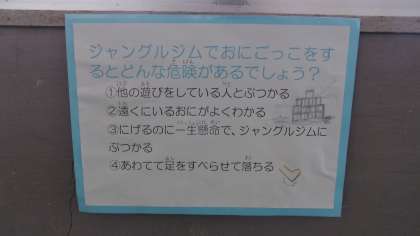 ジャングルジムでおにごっこをす
るとどんな危険があるでしょう？
①他の遊びをしている人とぶつかる
②遠くにいるおにがよくわかる
③にげるのに一生懸命で、ジャングルジムに
ぶつかる
④あわてて足をすべらせて落ちる